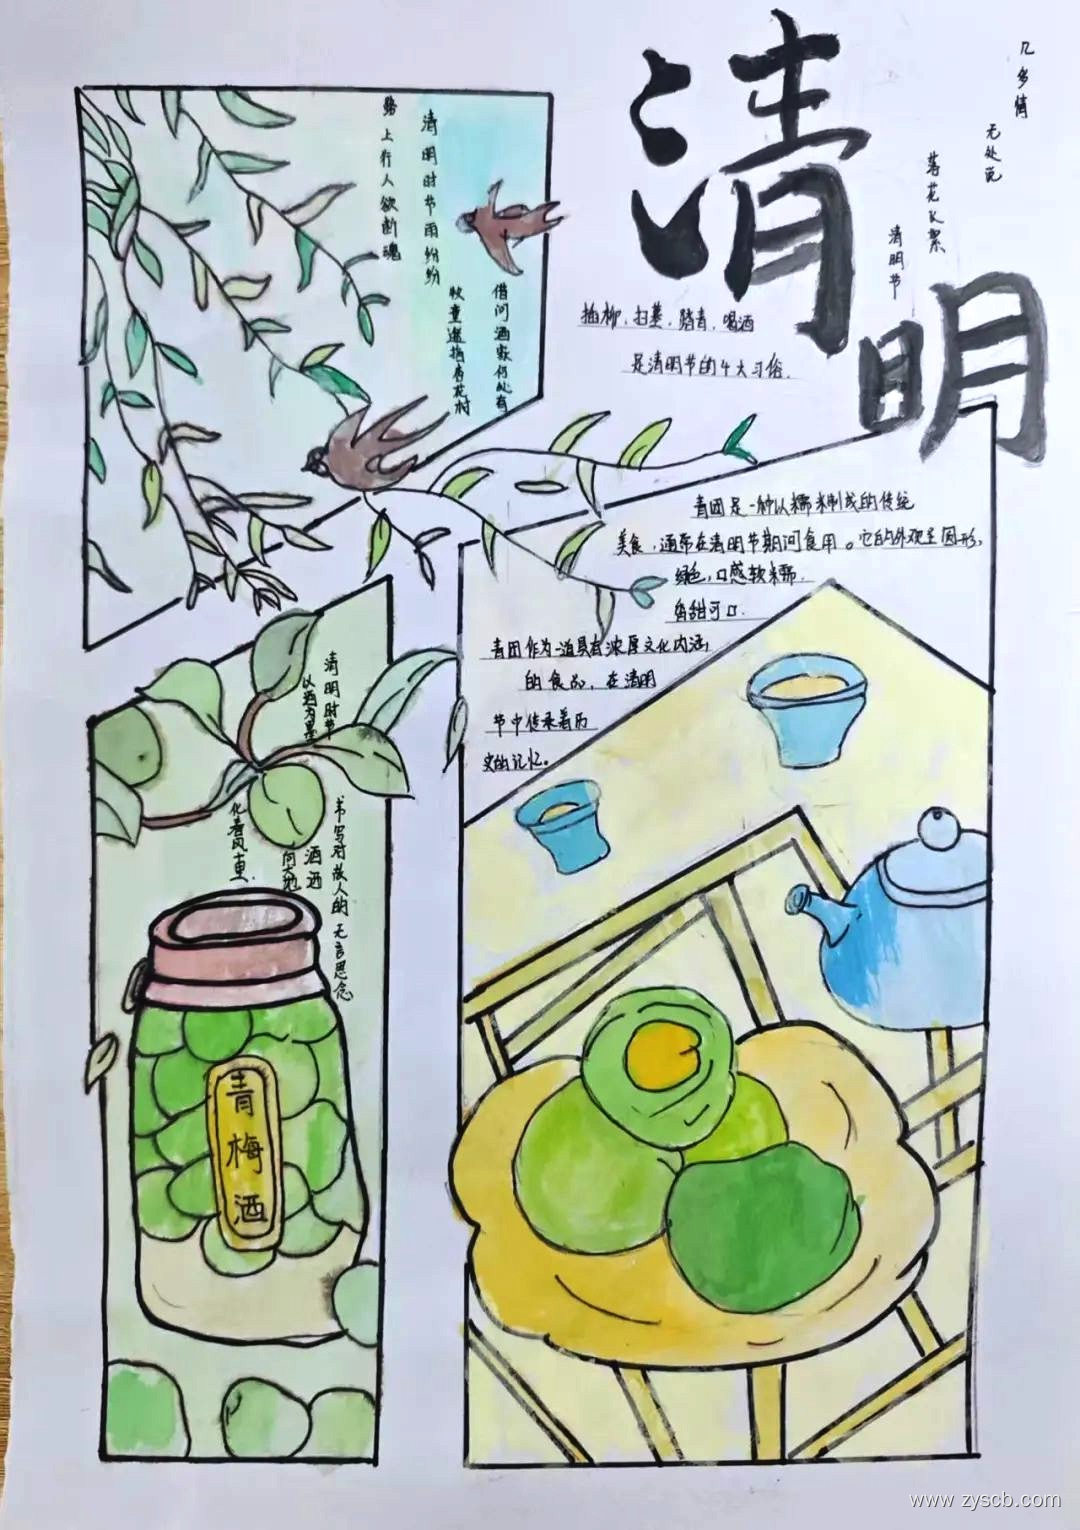 清明
几多情
无处说
落花飞絮
清明节
插柳、扫墓、踏青、喝酒
是清明节的4大习俗.
清明时节雨纷纷
路上行人欲断魂
借问酒家何处有
牧童遥指杏花村
青团是一种以糯米制成的传统
美食，通常在清明节期间食用。它的外观呈圆形，
绿色，口感软糯.
香甜可口.
青团作为一道具有浓厚文化内涵
的食品，在清明
节中传承着历
史的记忆。
清明时节
以酒为墨
书写对故人的无言思念
酒洒
向大地
化春风重.
青梅酒
www.zyscb.com